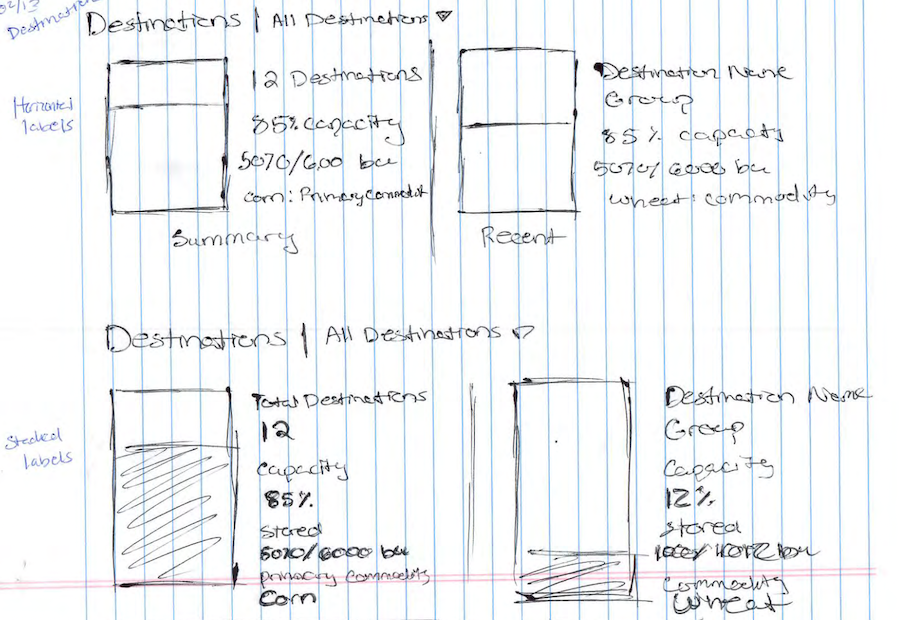 02/13
Destinations | All Destinations
Horizontal
labels
12 Destinations
85% capacity
5070/600 bu
corn: Primary Commodit
Summary
Destination Name
Group
85% capacity
5070/6000 bu
wheat: commodity
Recent
Destinations | All Destinations
Stacked
labels
Total Destinations
12
Capacity
85%
Stored
5070/6000 bu
Primary Commodity
Corn
Destination Name
Group
Capacity
12%
Stored
bu
Commodity
Wheat